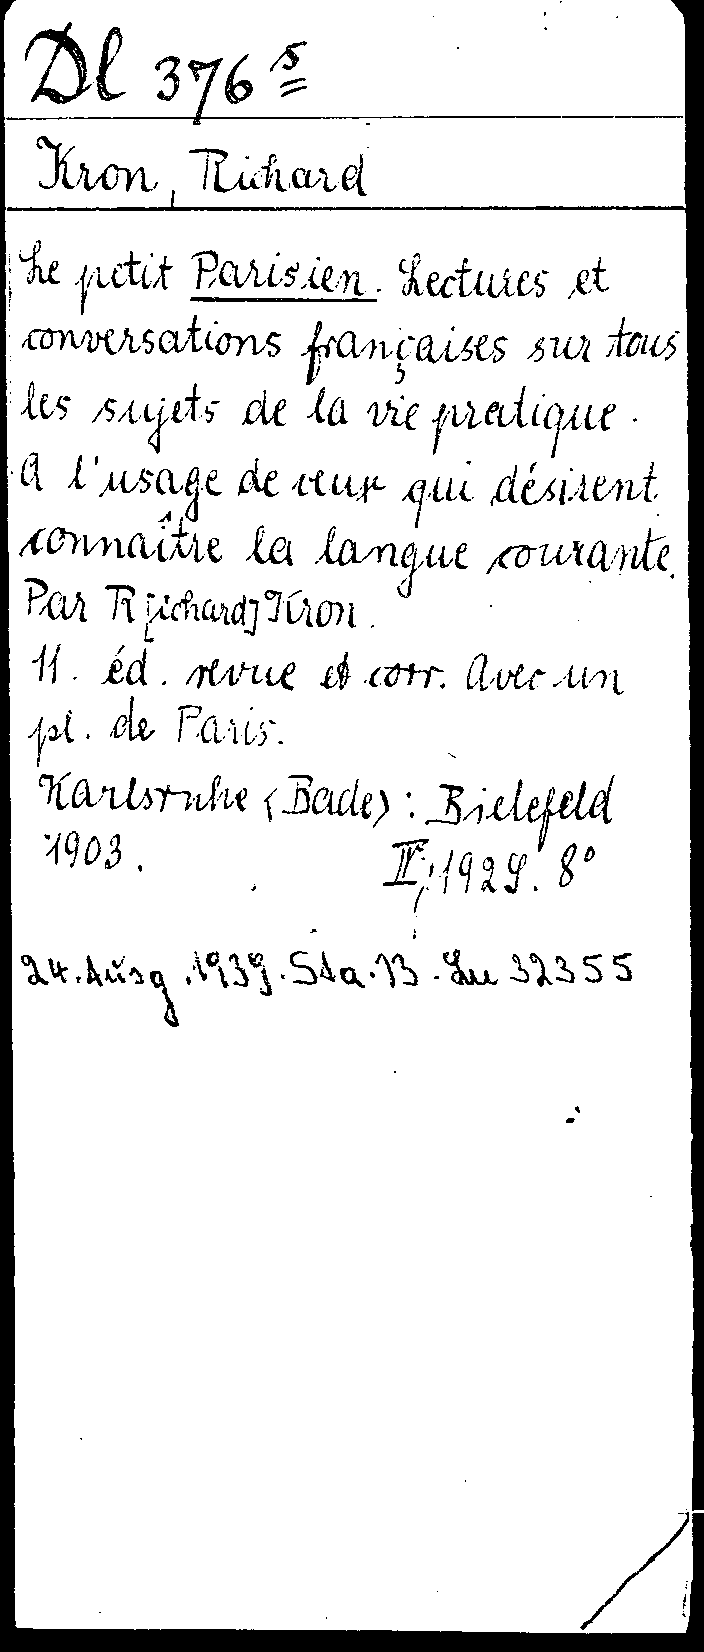 Dl 376 5
Kron, Richard
Le petit Parisien. Lectures et
conversations françaises sur tous
les sujets de la vie pratique.
A l'usage de ceux qui désirent
connaître la langue courante.
Par R[ichard] Kron.
11. éd. revue et corr. Avec un
pl. de Paris.
Karlsruhe (Bade): Bielefeld
1903. IV, 192 S. 8°
24. Ausg. 1939. Sta. B. Lu 32355